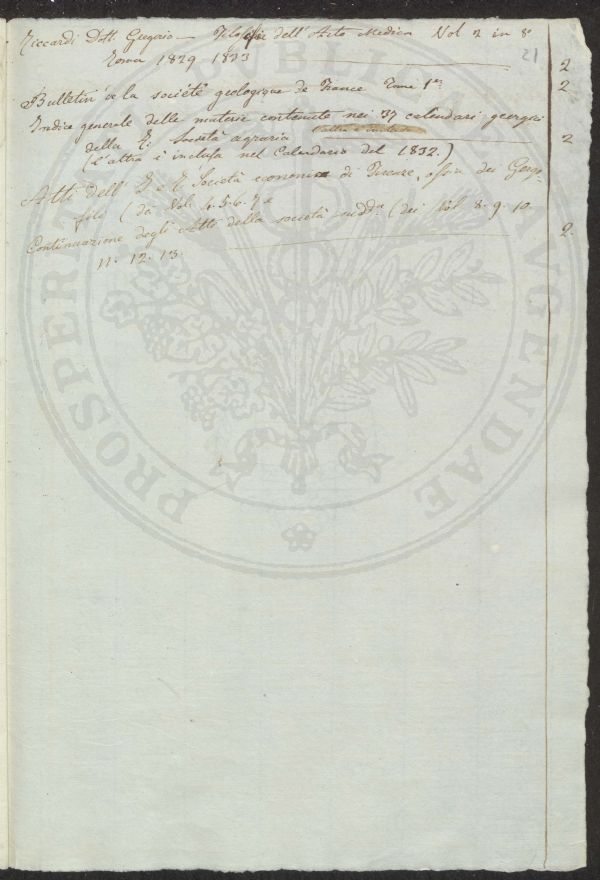 Riccardi Dott. Gregorio — dell'Arte Medica Vol 2 in 8°
21
Roma 1829 1833 2
Bulletin de la société géologique de France Tome 1er 2
Indice generale delle materie contenute nei 37 calendari georgici
della R. Società agraria 2
(l'altra è inclusa nel Calendario del 1832.)
Atti dell' I e R Società economica di Firenze, ossia dei Georgo-
fili (dei Vol. 4. 5. 6. 7
Continuazione degli Atti della società sudda (dei Vol 8. 9. 10. 2
11. 12. 13.
PROSPERITATI PUBLICAE AUGENDAE